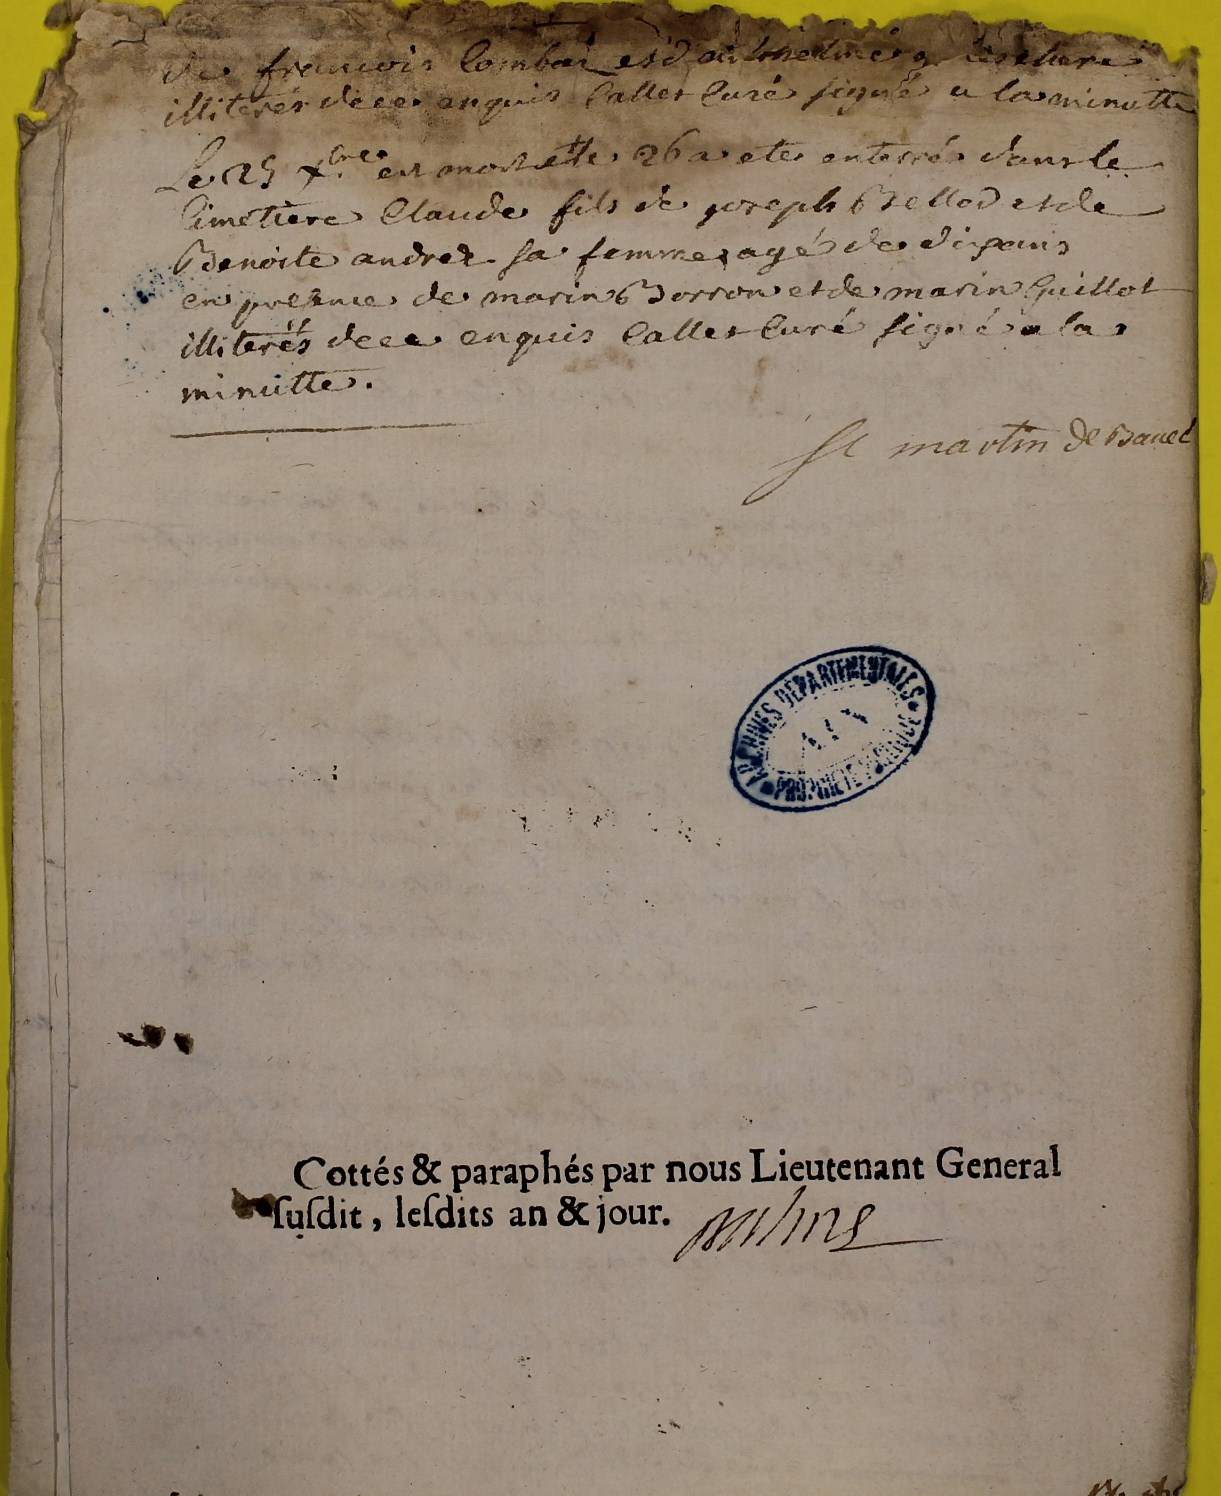 de francois Combar et d
illiterés de ce enquis Callet Curé signé a la minutte
Le 25 xbre est mort et le 26 a ete enterré dans le
Cimetiere Claude fils de joseph Bellod et de
Benoite andrez sa femme agé de dix ans
en presence de marin Borron et de marin Guillot
illiterés de ce enquis Callet Curé signé a la
minutte.
St martin de Bavel
ARCHIVES DÉPARTEMENTALES
AIN
PROPRIÉTÉ PUBLIQUE
Cottés & paraphés par nous Lieutenant General
ſuſdit, leſdits an & jour.